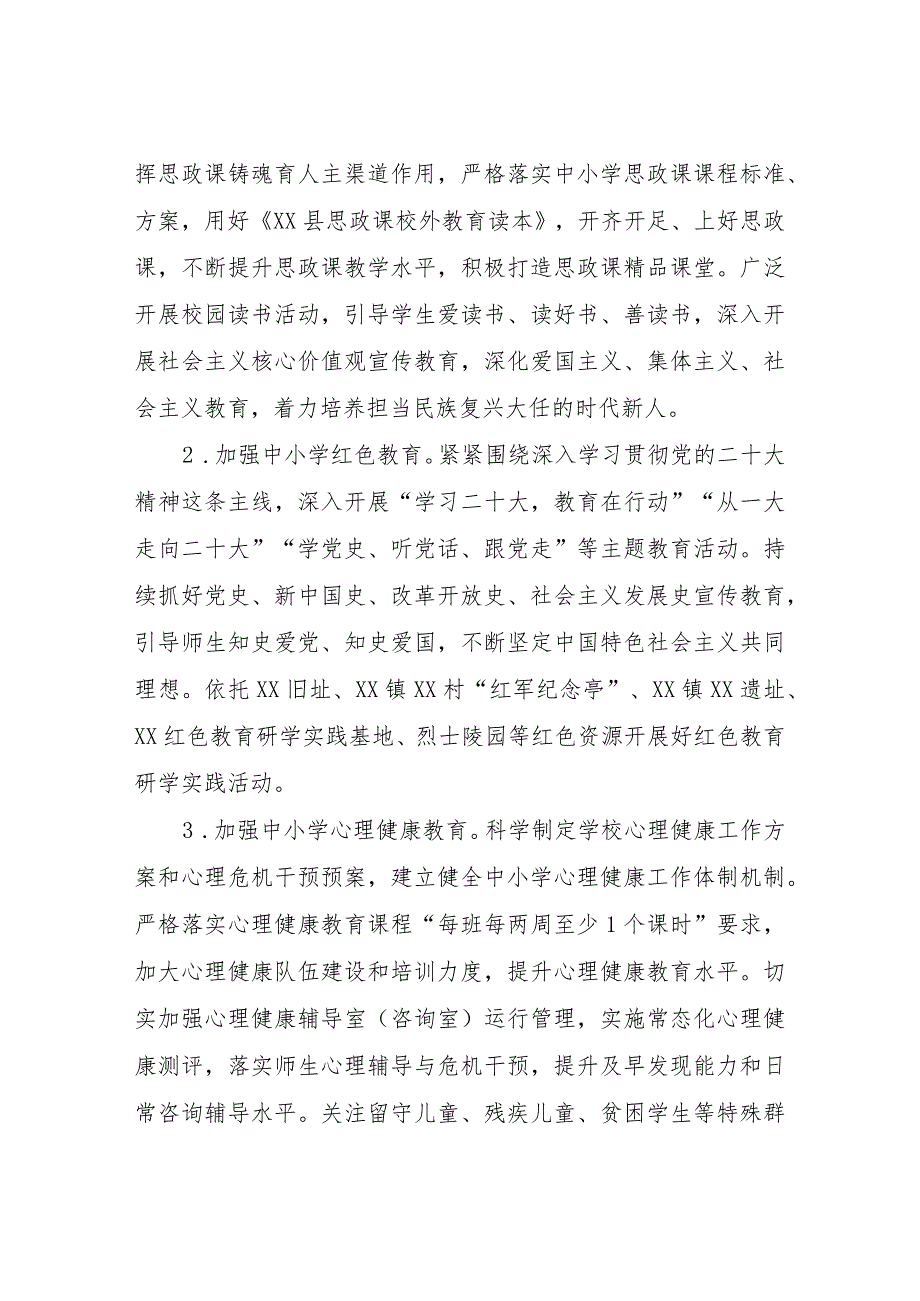 挥思政课铸魂育人主渠道作用，严格落实中小学思政课课程标准、
方案，用好《XX 县思政课校外教育读本》，开齐开足、上好思政
课，不断提升思政课教学水平，积极打造思政课精品课堂。广泛
开展校园读书活动，引导学生爱读书、读好书、善读书，深入开
展社会主义核心价值观宣传教育，深化爱国主义、集体主义、社
会主义教育，着力培养担当民族复兴大任的时代新人。
2 . 加强中小学红色教育。紧紧围绕深入学习贯彻党的二十大
精神这条主线，深入开展“学习二十大，教育在行动”“从一大
走向二十大”“学党史、听党话、跟党走”等主题教育活动。持
续抓好党史、新中国史、改革开放史、社会主义发展史宣传教育，
引导师生知史爱党、知史爱国，不断坚定中国特色社会主义共同
理想。依托 XX 旧址、XX 镇 XX 村“红军纪念亭”、XX 镇 XX 遗址、
XX 红色教育研学实践基地、烈士陵园等红色资源开展好红色教育
研学实践活动。
3 . 加强中小学心理健康教育。科学制定学校心理健康工作方
案和心理危机干预预案，建立健全中小学心理健康工作体制机制。
严格落实心理健康教育课程“每班每两周至少 1 个课时”要求，
加大心理健康队伍建设和培训力度，提升心理健康教育水平。切
实加强心理健康辅导室（咨询室）运行管理，实施常态化心理健
康测评，落实师生心理辅导与危机干预，提升及早发现能力和日
常咨询辅导水平。关注留守儿童、残疾儿童、贫困学生等特殊群